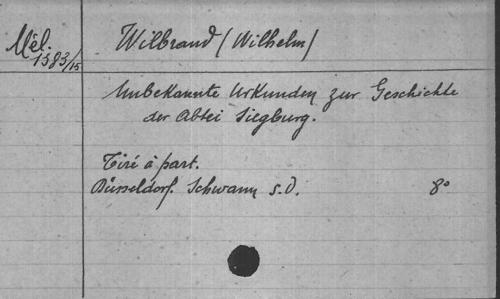 Mél.
1383/15
Wilbrand (Wilhelm)
Unbekannte Urkunden zur Geschichte
der Abtei Siegburg.
Tiré à part.
Düsseldorf. Schwann s.d.
8°